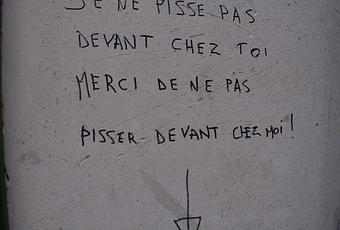 JE NE PISSE PAS
DEVANT CHEZ TOI
MERCI DE NE PAS
PISSER DEVANT CHEZ MOI !